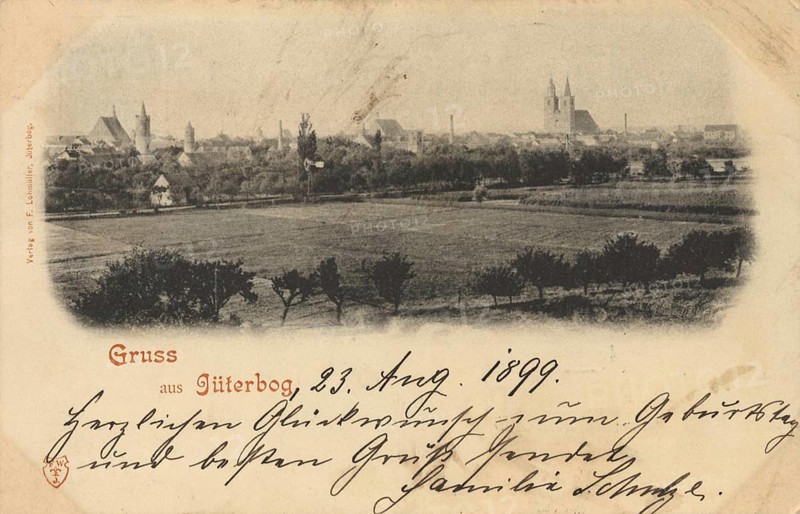 Verlag von F. Lohmüller, Jüterbog.
Gruss
aus Jüterbog, 23. Aug. 1899.
Herzlichen Glückwunsch zum Geburtstag
und besten Gruß sendet
Familie Schulze.
PHOTO12
PHOTO12
PHOTO12
PHOTO12